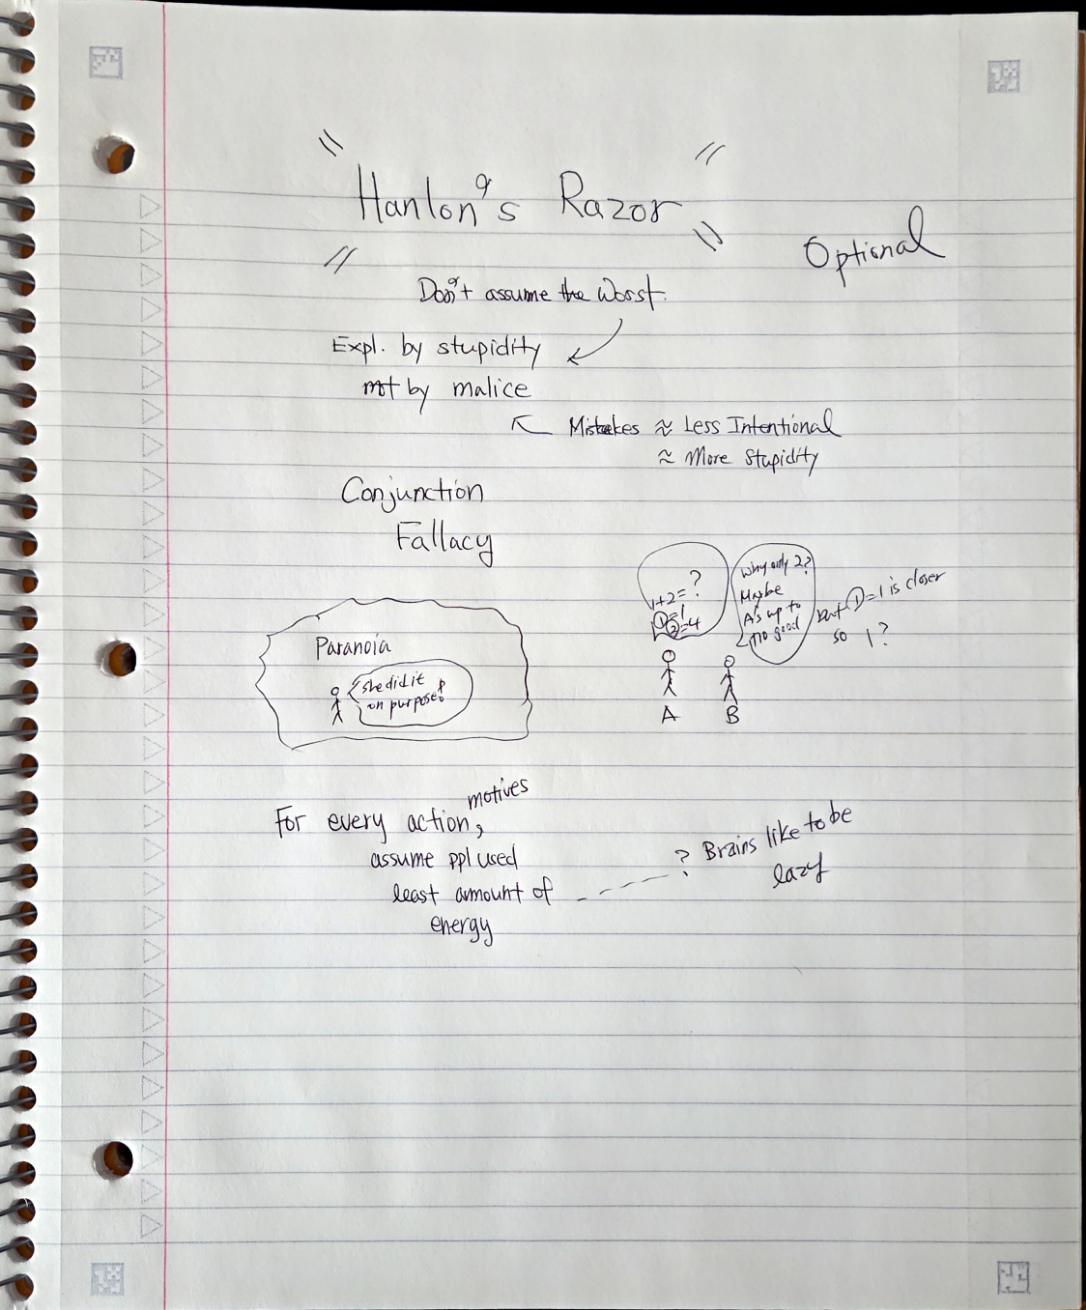 "Hanlon's Razor"
Optional
Don't assume the Worst.
Expl. by stupidity
not by malice
Mistakes ≈ Less Intentional
≈ More Stupidity
Conjunction
Fallacy
1+2=?
①=1
②=4
Why only 2?
Maybe
A's up to
no good
but ①=1 is closer
so 1?
A
B
Paranoia
she did it
on purpose!
For every action, motives
assume ppl used
least amount of
energy
? Brains like to be
lazy